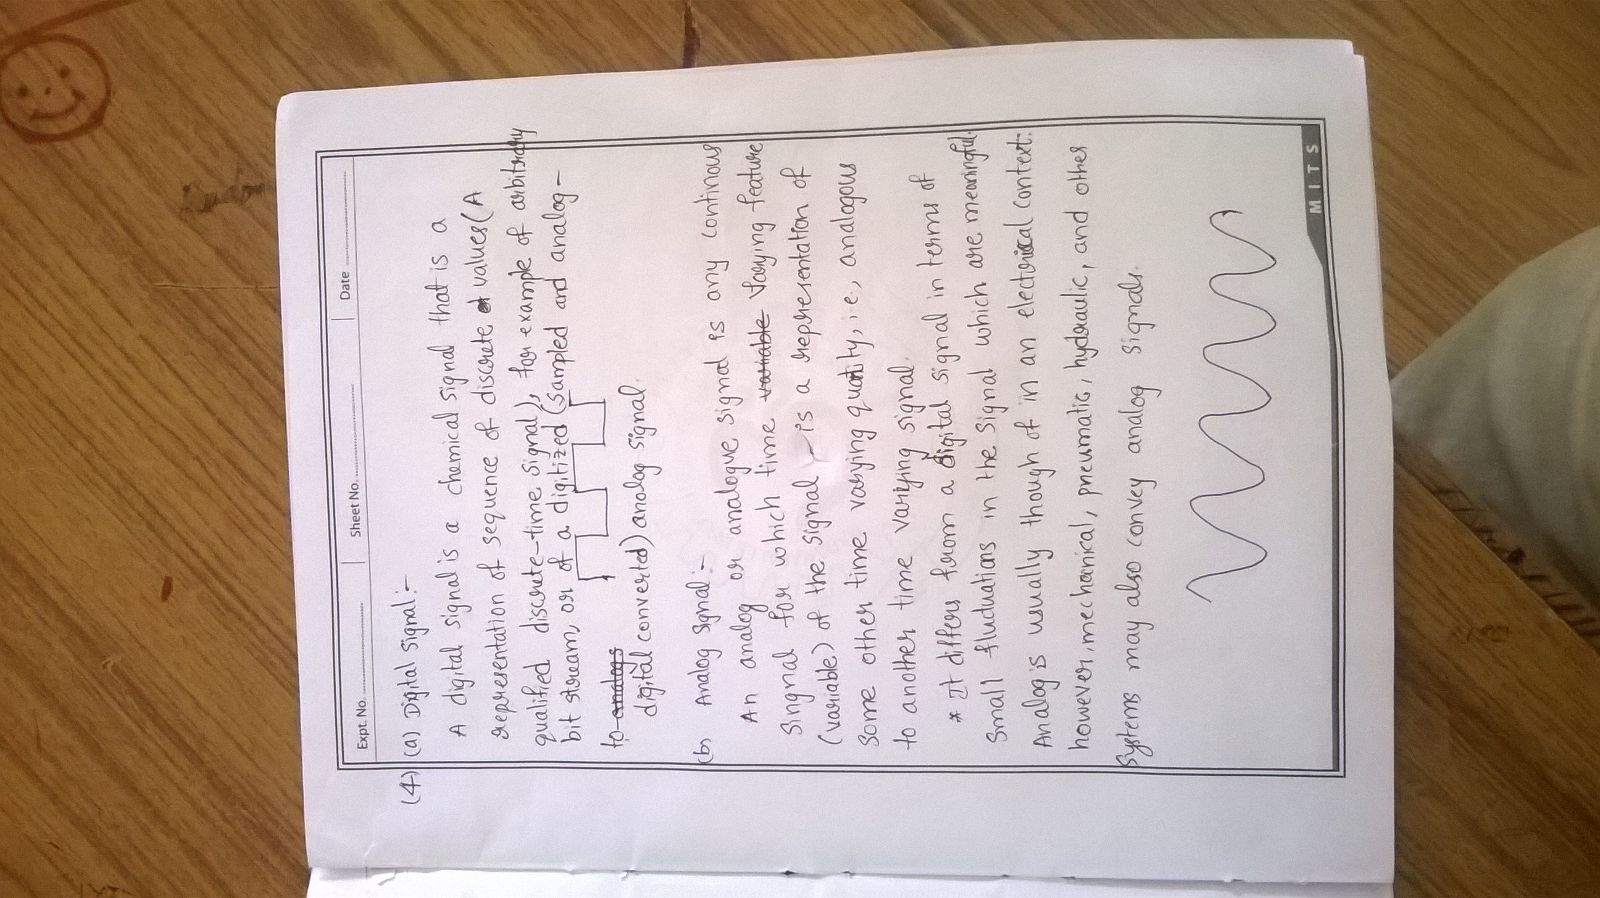 Expt. No. Sheet No. Date
(4) (a) Digital Signal:-
A digital signal is a chemical signal that is a
representation of sequence of discrete values (A
qualified discrete-time signal), for example of arbitrary
bit stream, or of a digitized (sampled and analog-
to analogs
digital converted) anolog signal.
(b) Analog Signal:-
An analog or analogue signal is any continous
Singnal for which time variable Varying feature
(variable) of the signal - is a representation of
Some other time varying quatity, i.e., analogous
to another time variying signal.
* It differs from a digital signal in terms of
Small fluduations in the signal which are meaningful.
Analog is usually though of in an electrical context:
however, mechenical, pneumatic, hydraulic, and other
Systems may also convey analog signals.
MITS